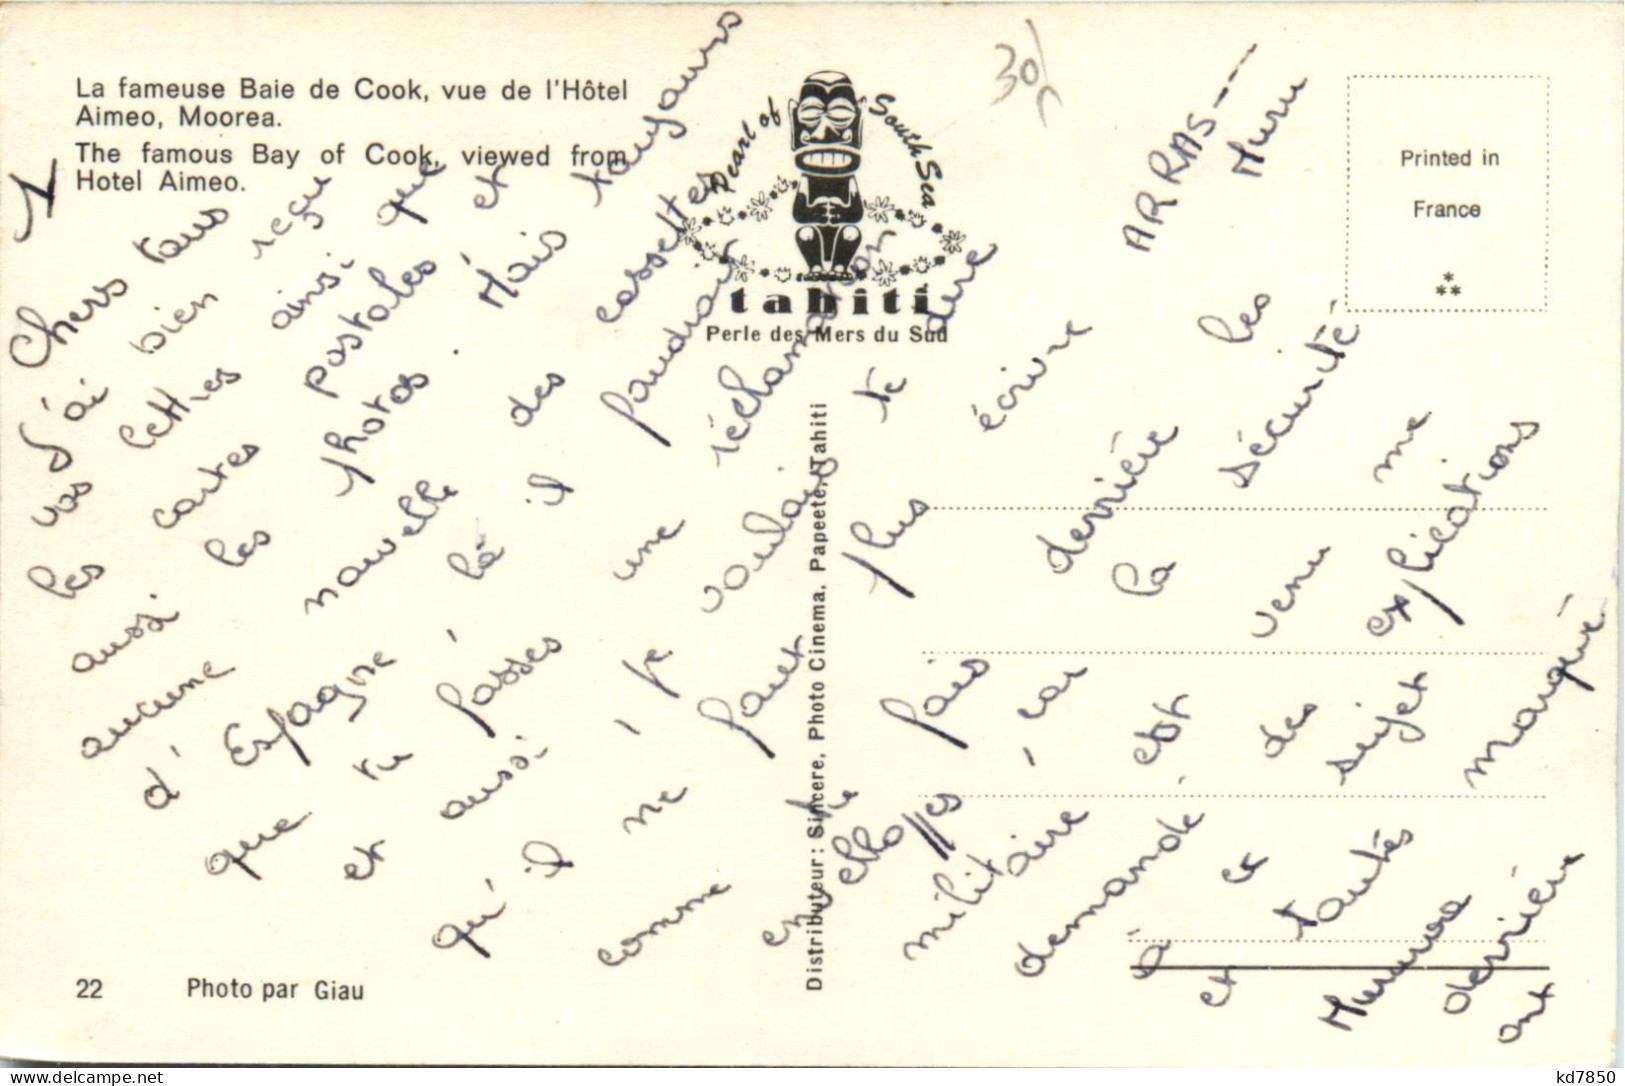 La fameuse Baie de Cook, vue de l'Hôtel
Aimeo, Moorea.
The famous Bay of Cook, viewed from
Hotel Aimeo.
Pearl of South Sea
tahiti
Perle des Mers du Sud
30f
Printed in
France
***
1
Chers tous
J'ai bien reçu
vos lettres ainsi que
les cartes postales et
aussi les photos. Mais toujours
aucune nouvelle des cassettes
d'Espagne là il faudrait
que tu passes une réclamation
et aussi, je voulais te dire
qu'il ne faut plus écrire
comme tu fais derrière les
enveloppes, car la sécurité
militaire est venu me
demandé des explications
à ce sujet
et toutes marqué
Mururoa derrière
ont
ARRAS ---
Muru
Distributeur: Sincere, Photo Cinema, Papeete, Tahiti
22 Photo par Giau
kd7850